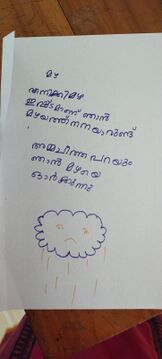 മഴ
എനിക്കിമഴ
ഇഷ്ടമാണ് ഞാൻ
മഴയത്ത് നനയാറുണ്ട്
അമ്മചീത്ത പറയും
ഞാൻ മഴയെ
ഓർക്കുന്നു